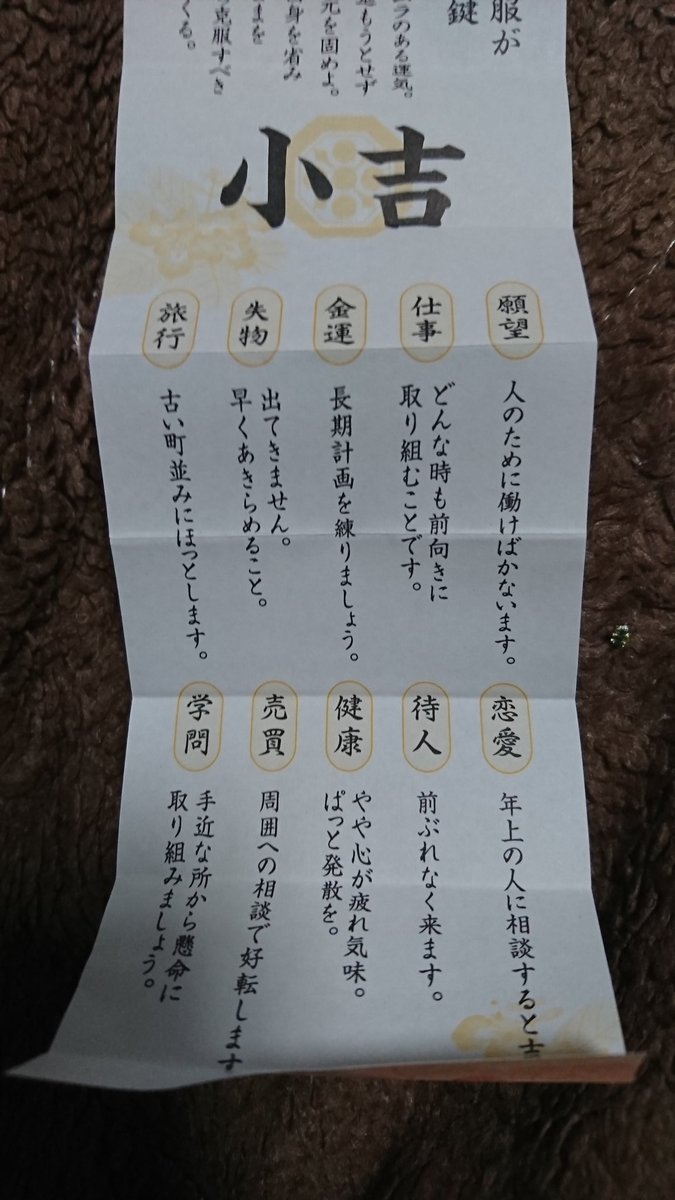 服が
鍵
ラのある運気。
もうとせず
元を固めよ。
身を省み
まを
克服すべき
くる。
小吉
願望
人のために働けばかないます。
仕事
どんな時も前向きに
取り組むことです。
金運
長期計画を練りましょう。
失物
出てきません。
早くあきらめること。
旅行
古い町並みにほっとします。
恋愛
年上の人に相談すると吉
待人
前ぶれなく来ます。
健康
やや心が疲れ気味。
ぱっと発散を。
売買
周囲への相談で好転します
学問
手近な所から懸命に
取り組みましょう。